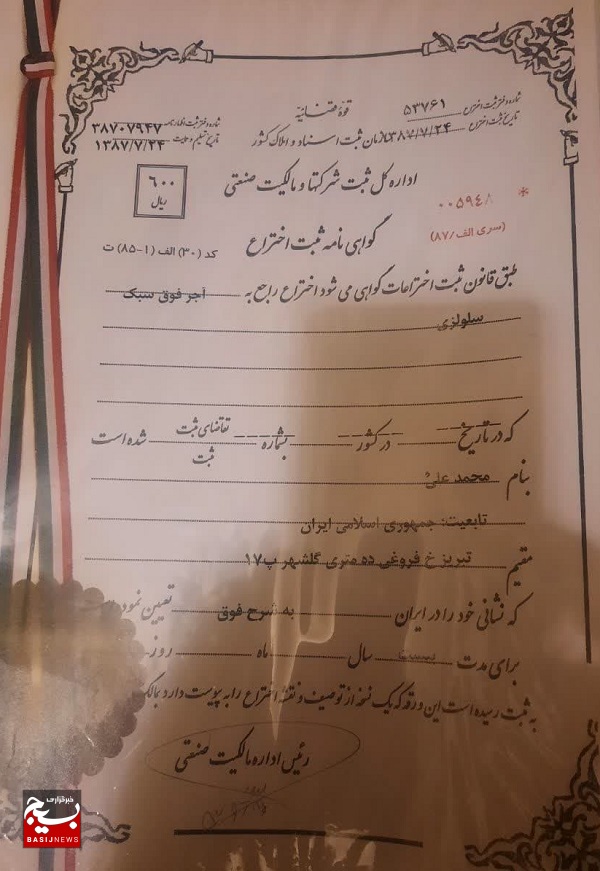 شماره دفتر ثبت اختراع ۵۳۷۶۱
تاریخ ثبت اختراع ۱۳۸۷/۷/۲۴
قوهٔ قضائیه
سازمان ثبت اسناد و املاک کشور
شماره دفتر ثبت اظهارنامه ۳۸۷۰۷۹۴۷
تاریخ تسلیم ۱۳۸۷/۷/۲۴
اداره کل ثبت شرکتها و مالکیت صنعتی
۶۰۰
ریال
۰۰۵۹۴۸ *
(سری الف/۸۷)
گواهی نامه ثبت اختراع
کد (۳۰) الف (۱-۸۵) ت
طبق قانون ثبت اختراعات گواهی می شود اختراع راجع به آجر فوق سبک
سلولزی
که در تاریخ در کشور بشماره تقاضای ثبت شده است
ثبت
بنام محمد علی
تابعیت: جمهوری اسلامی ایران
مقیم تبریز خ فروغی ده متری گلشهر پ۱۷
که نشانی خود را در ایران به شرح فوق تعیین نموده
برای مدت بیست سال ماه روز
به ثبت رسیده است این ورقه که یک نسخه از توصیف و نقشه اختراع را به پیوست دارد بمالک
رئیس اداره مالکیت صنعتی
خبرگزاری
بسیج
BASIJNEWS